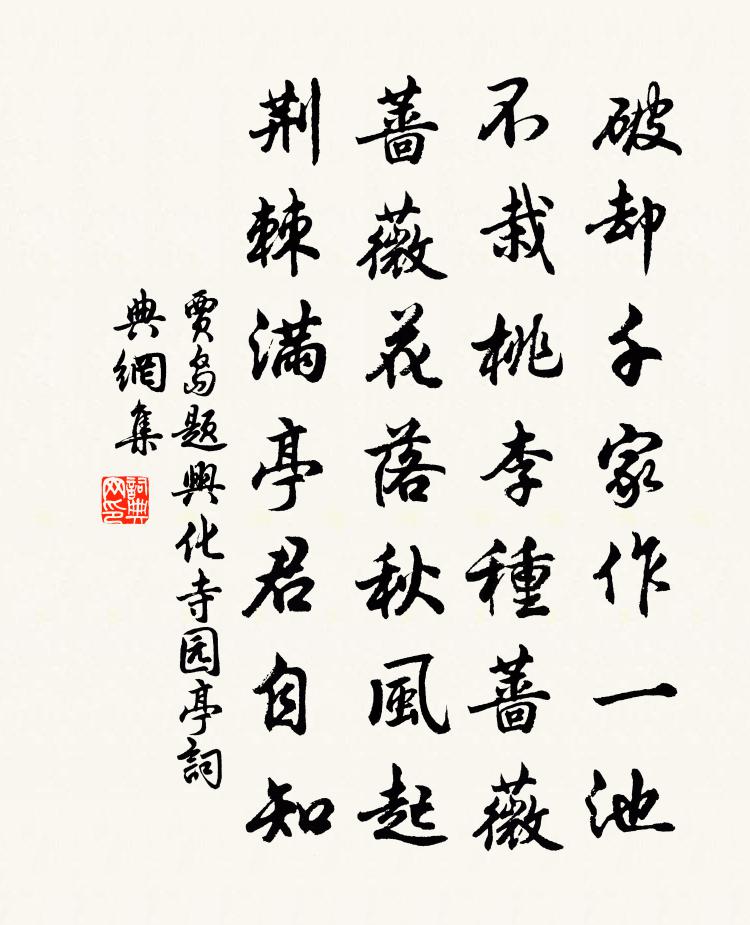 破却千家作一池
不栽桃李種薔薇
薔薇花落秋風起
荆棘滿亭君自知
賈島題興化寺园亭詞
典網集
詞典
网印